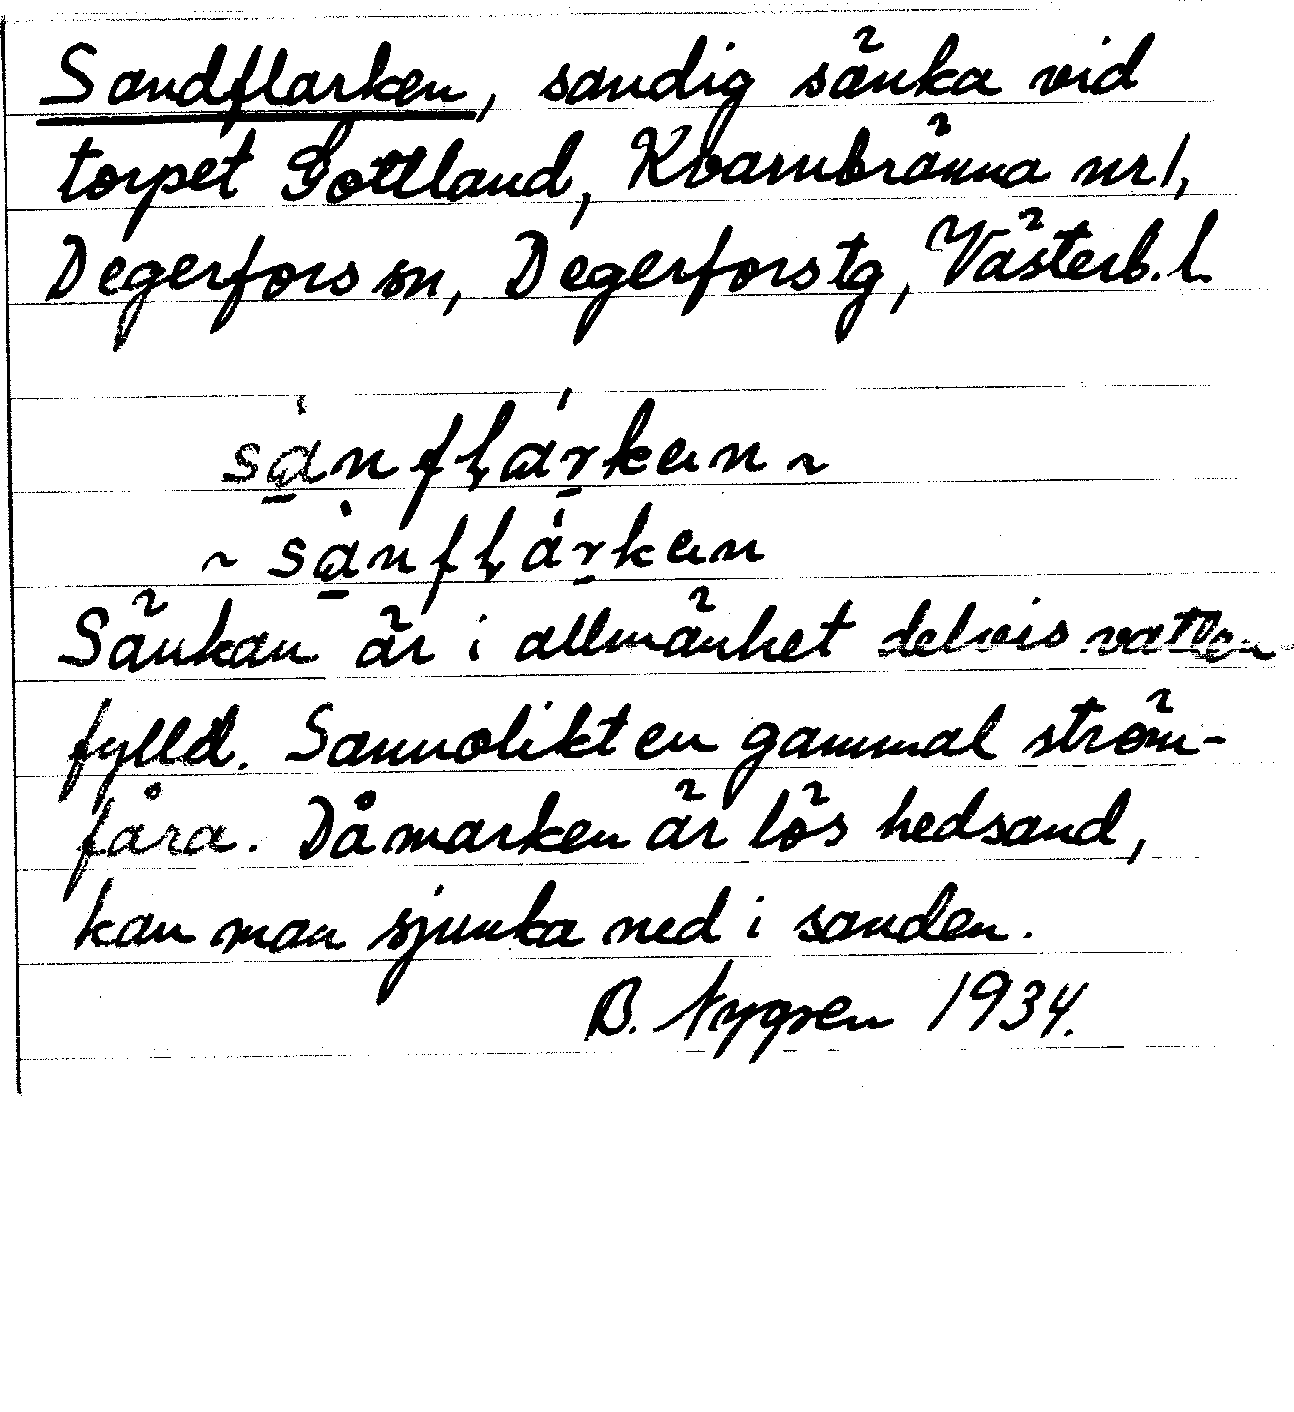 Sandflarken, sandig sänka vid
torpet Gottland, Kvarnbränna nr 1,
Degerfors sn, Degerfors tg, Västerb. l.
sanflarkən ~
~ sanflarkən
Sänkan är i allmänhet delvis vatten
fylld. Sannolikt en gammal ström-
fåra. Då marken är lös hedsand,
kan man sjunka ned i sanden.
B. Nygren 1934.